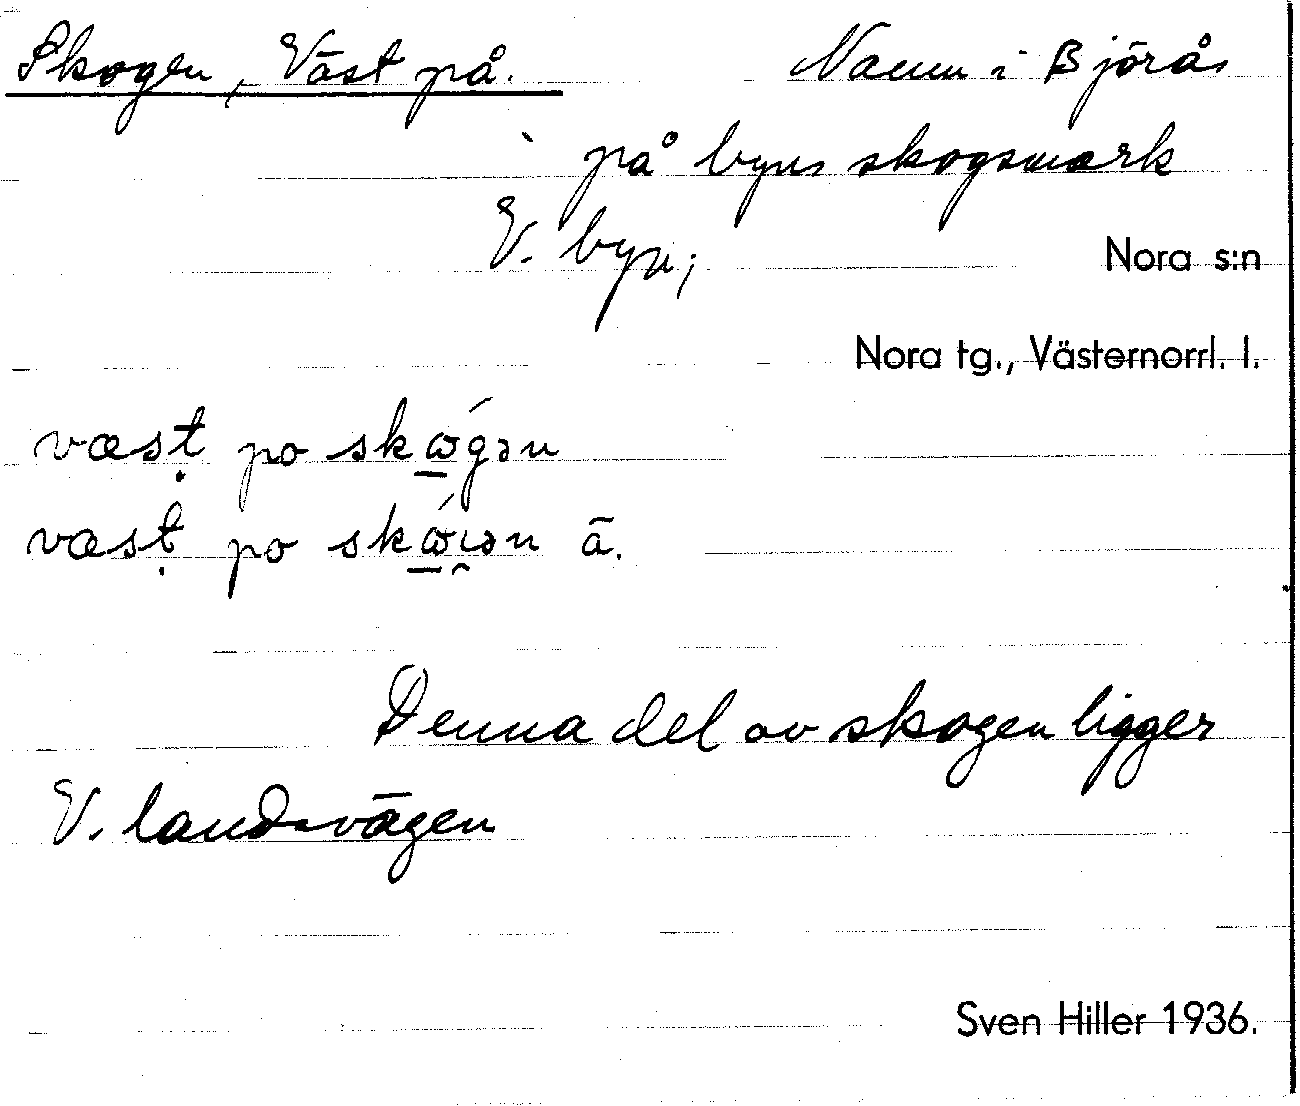 Skogen, Väst på. Namn i Björås
på byns skogsmark
V. byn;
Nora s:n
Nora tg., Västernorrl. l.
væsṭ po skώ̱gən
væsṭ po skώ̱ı̯ən ā.
Denna del av skogen ligger
V. landsvägen
Sven Hiller 1936.